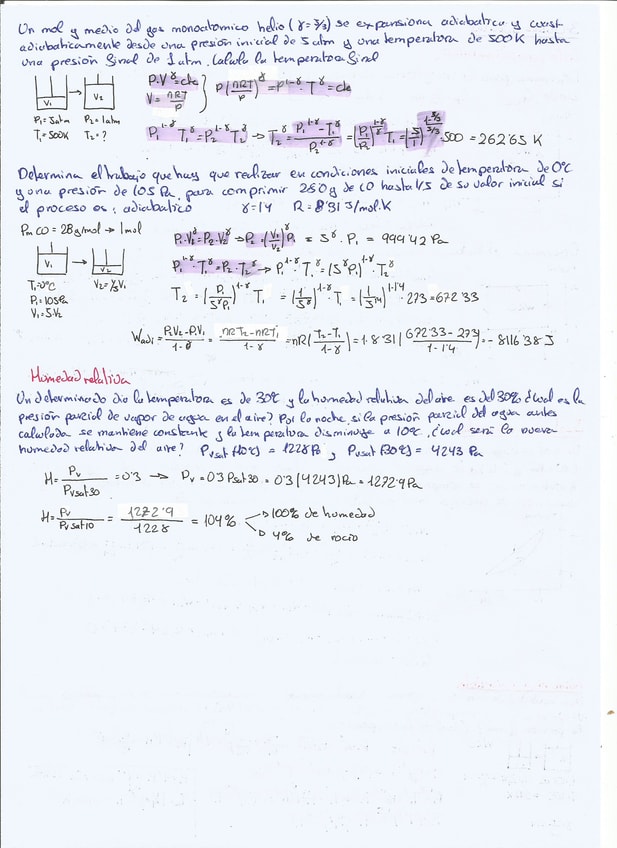 Un mol y medio del gas monoatómico helio (γ = 5/3) se expansiona adiabática y cuasi-
adiabaticamente desde una presión inicial de 5 atm y una temperatura de 500K hasta
una presión final de 1 atm. Calcula la temperatura final
V₁ → V₂
P·V^γ = cte
V = nRT/P } P(nRT/P)^γ = P^(1-γ)·T^γ = cte
P₁ = 5atm P₂ = 1atm
T₁ = 500K T₂ = ?
P₁^(1-γ) T₁^γ = P₂^(1-γ) T₂^γ → T₂^γ = P₁^(1-γ)·T₁^γ / P₂^(1-γ) = (P₁/P₂)^((1-γ)/γ) T₁ = (5/1)^((1-5/3)/(5/3)) 500 = 262'65 K
Determina el trabajo que hay que realizar en condiciones iniciales de temperatura de 0ºC
y una presión de 105 Pa, para comprimir 280g de CO hasta 1/5 de su valor inicial si
el proceso es: adiabatico γ = 1'4 R = 8'31 J/mol·K
Pm CO = 28g/mol → 1mol
V₁ → V₂
P₁·V₁^γ = P₂·V₂^γ → P₂ = (V₁/V₂)^γ P₁ = 5^γ · P₁ = 999'42 Pa
P₁^(1-γ)·T₁^γ = P₂^(1-γ)·T₂^γ → P₁^(1-γ)·T₁^γ = (5^γ P₁)^(1-γ)·T₂^γ
T₁ = 0ºC V₂ = 1/5 V₁
P₁ = 105Pa
V₁ = 5·V₂
T₂ = (P₁/5^γP₁)^(1-γ) T₁ = (1/5^γ)^(1-γ)·T₁ = (1/5^1'4)^(1-1'4)·273 = 672'33
Wadi = P₂V₂-P₁V₁/1-γ = nRT₂-nRT₁/1-γ = nR(T₂-T₁/1-γ) = 1·8'31(672'33-273/1-1'4) = -8116'38 J
Humedad relativa
Un determinado dia la temperatura es de 30ºC y la humedad relativa del aire es del 30% ¿Cual es la
presión parcial de vapor de agua en el aire? Por la noche, si la presión parcial del agua antes
calculada se mantiene constante y la temperatura disminuye a 10ºC, ¿cual será la nueva
humedad relativa del aire? Pvsat (10ºC) = 1228Pa, Pvsat (30ºC) = 4243 Pa
H = Pv/Pvsat30 = 0'3 → Pv = 0'3 Psat30 = 0'3 (4243) Pa = 1272'9 Pa
H = Pv/Pvsat10 = 1272'9/1228 = 104% → 100% de humedad
→ 4% de rocio